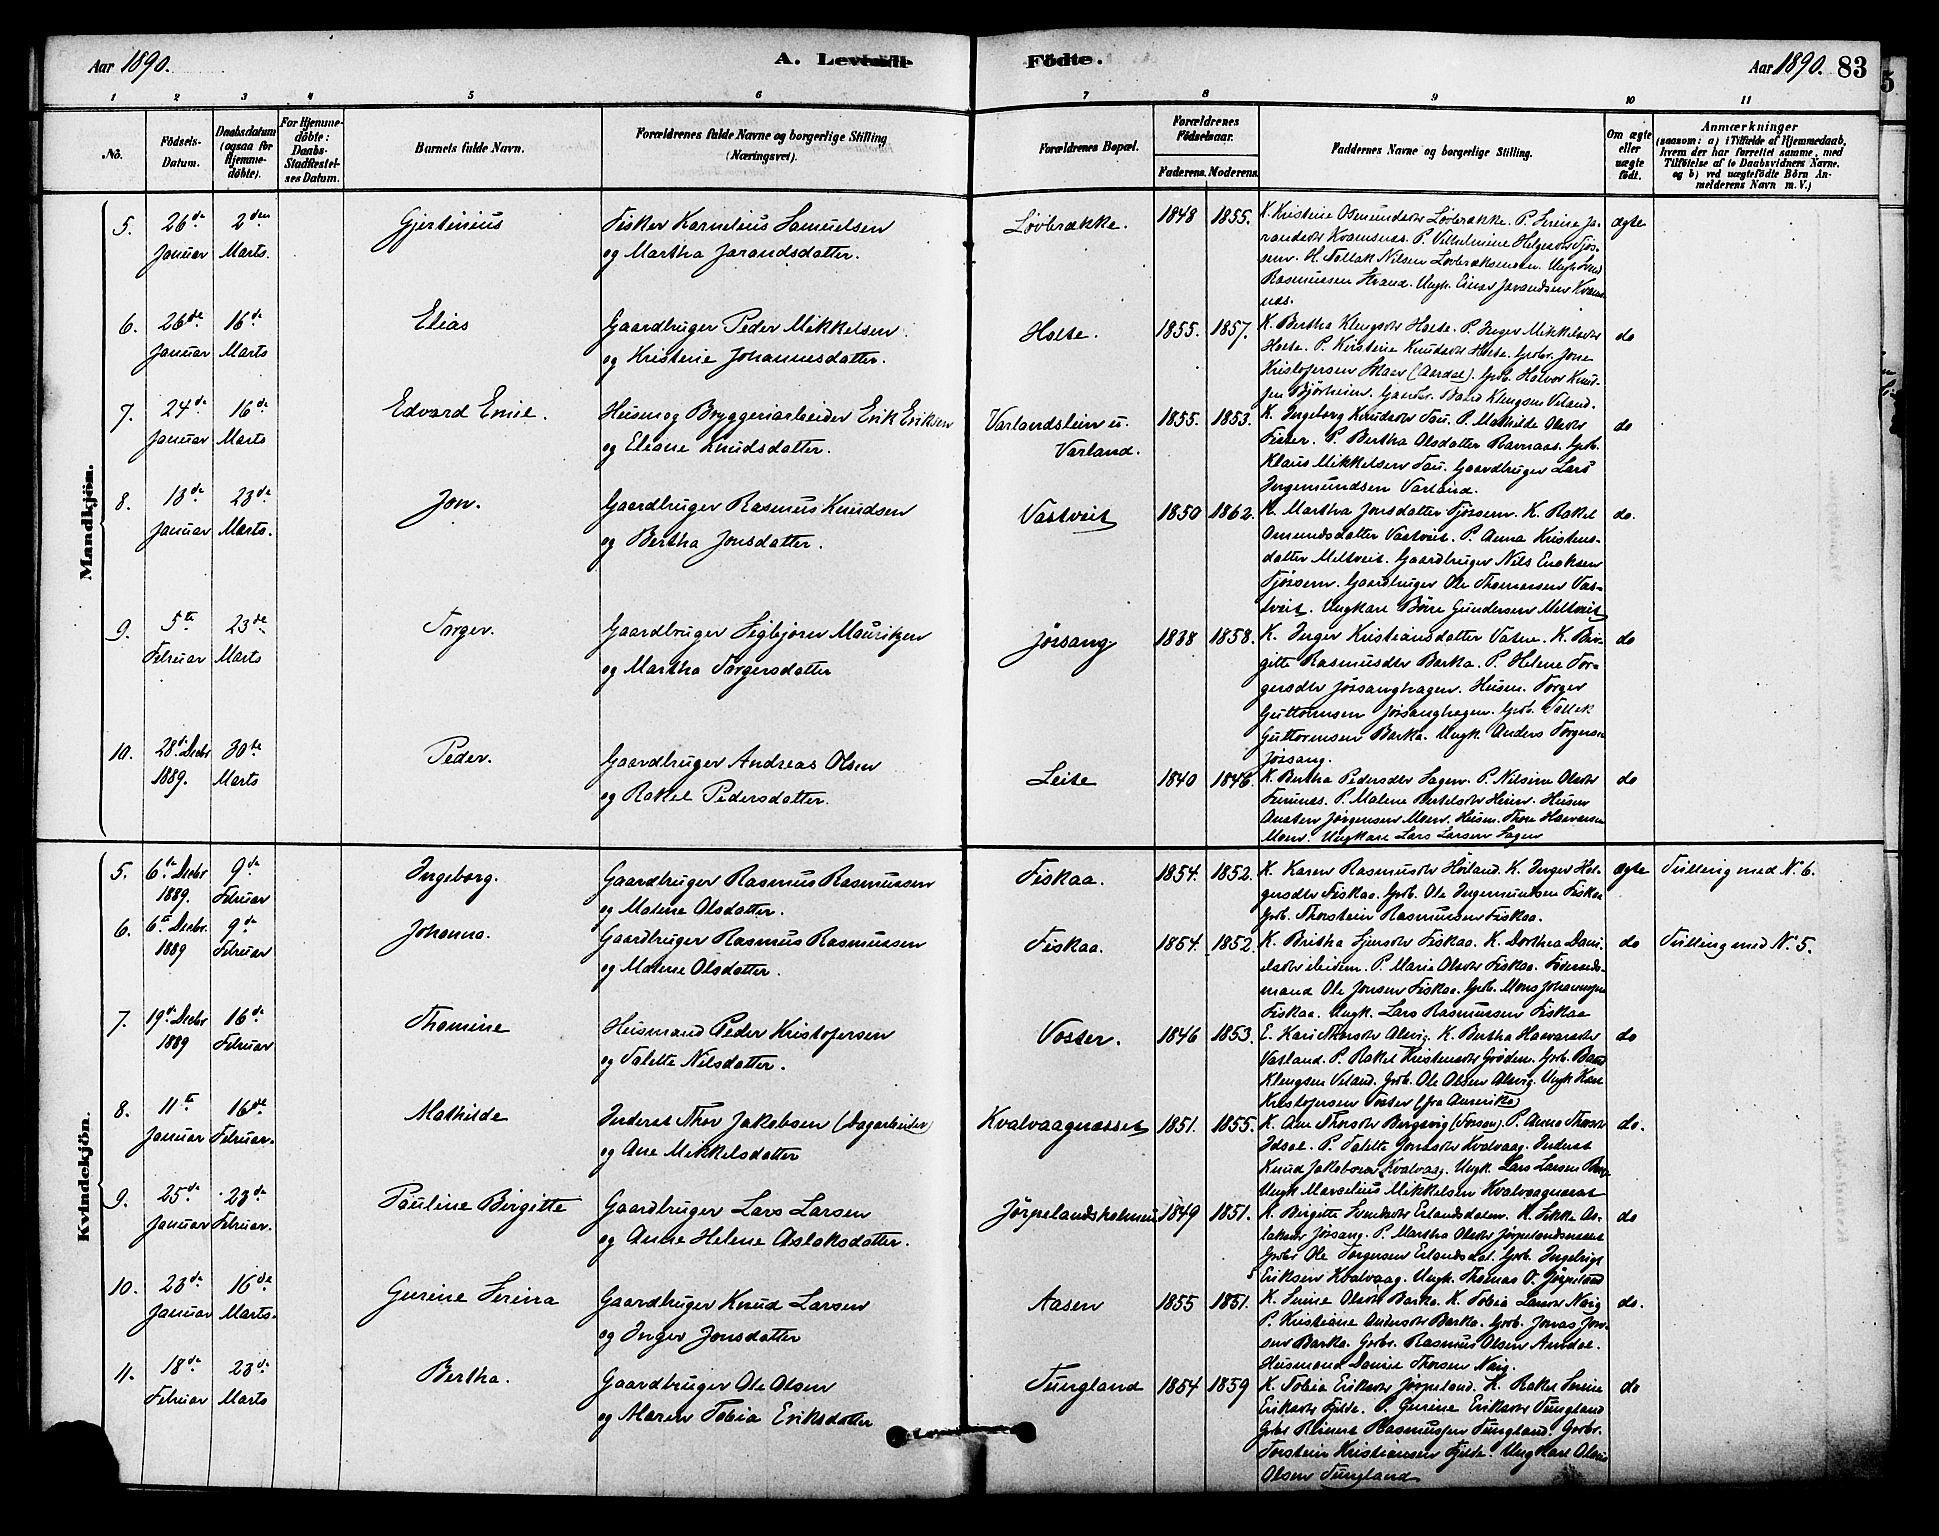 Aar 1890.
A. Levende
Födte.
Aar 1890. 83
1 2 3 4 5 6 7 8 9 10 11
No.
Födsels-Datum.
Daabsdatum (ogsaa for Hjemmedöbte).
For Hjemmedöbte: Daabs-Stadfestelses Datum.
Barnets fulde Navn.
Forældrenes fulde Navne og borgerlige Stilling (Næringsvei).
Forældrenes Bopæl.
Forældrenes Födselsaar.
Faderens. Moderens.
Faddernes Navne og borgerlige Stilling.
Om ægte eller uægte födt.
Anmærkninger
(saasom: a) i Tilfælde af Hjemmedaab, hvem der har forrettet samme, med Tilföielse af to Daabsvidners Navne, og b) ved uægtefödte Börn Anmelderens Navn m. V.)
Mandkjön.
5. 26de Januar 2den Marts. Gjertinius
Fisker Kornelius Samuelsen
og Martha Jarandsdatter.
Løvbrække. 1848 1855.
K. Kristine Osmundsdtr Løvbrække. P. Serine Ja-
randsdtr Kvamsnæs. P. Vilhelmine Helgesdtr Tjøs-
sem. H. Tollak Nilsen Løvbrækmoen. Ungk.
Rasmussen Strand. Ungk. Einar Jarandsen Kvams-
næs.
ægte
6. 26de Januar 16de Marts Elias
Gaardbruger Peder Mikkelsen
og Kristine Johannesdatter.
Holte. 1855. 1857.
K. Bertha Klengsdtr Holte. P. Inger Mikkelsdtr
Holte. P. Kirstine Knudsdtr Holte. Grbr. Jone
Kristofersen (Aardal). Grb. Halvor Knud-
sen Bjørheim. Gaardbr. Baard Klengsen Veland.
do
7. 24de Januar 16de Marts Edvard Emil.
Husm og Bryggeriarbeider Erik Eriksen
og Eliane Knudsdatter.
Varlandstein u.
Varland.
1855. 1853.
K. Ingeborg Knudsdtr Tau. P. Mathilde Olsdtr
P. Bertha Olsdatter Ravnaas. Grb.
Klaus Mikkelsen Tau. Gaardbruger Lars
Ingemundsen Varland.
do
8. 13de Januar 23de Marts. Jon.
Gaardbruger Rasmus Knudsen
og Bertha Jonsdatter.
Vastveit 1850 1862.
K. Martha Jonsdatter Tjøssem. K. Rakel
Omundsdatter Vastveit. P. Anna Kristens-
datter Meltveit. Gaardbruger Nils Eriksen
Tjøssem. Gaardbruger Ole Thomassen Vas-
tveit. Ungkarl Børe Gundersen Meltveit
do.
9. 5te Februar 23de Marts Torger.
Gaardbruger Sigbjørn Mauritzen
og Martha Torgersdatter
Jøssang 1838 1858.
K. Inger Kristiansdatter Vatne. K. Bir-
gitte Rasmusdtr Barka. P. Helene Tor-
gersdtr Jøssanghagen. Husm. Torger
Guttormsen Jøssanghagen. Grb. Tollek
Guttormsen Barka. Ungk. Anders Torgersen
Jøssang.
do
10. 28de Decbr 1889. 30te Marts Peder.
Gaardbruger Andreas Olsen
og Rakel Pedersdatter.
Leite 1840 1846.
K. Bertha Pedersdtr Sagen. P. Nilsine Olsdtr
P. Malene Bertelsdtr Heien. Husm
Jørgensen Moen. Husm. Thore Halvorsen
Moen. Ungkarl Lars Larsen Sagen
do
Kvindekjön.
5. 6te Decbr 1889. 9de Februar Ingeborg.
Gaardbruger Rasmus Rasmussen
og Malene Olsdatter.
Fiskaa. 1854. 1852.
K. Karen Rasmusdtr Høiland. K. Inger Hol-
gersdtr Fiskaa. Grb. Ole Ingemundsen Fiskaa
Grb. Thorstein Rasmussen Fiskaa.
ægte Tvilling med N. 6.
6. 6te Decbr. 1889 9de Februar Johanna.
Gaardbruger Rasmus Rasmussen
og Malene Olsdatter.
Fiskaa. 1854. 1852.
K. Britha Fiskaa. K. Dorthea Dani-
elsdtr ibidem. P. Maria Olsdtr Fiskaa. Föderaads-
mand Ole Jonsen Fiskaa. Grb. Mons Johannesen
Fiskaa. Ungk. Lars Rasmussen Fiskaa
do Tvilling med N. 5.
7. 19de Decbr 1889 16de Februar Thomine
Husmand Peder Kristofersen
og Talette Nilsdatter.
Voster. 1846 1853.
E. Kari Thorsdtr Alsvig. K. Bertha Haavarsdtr
Varland. P. Rakel Kristensdtr Grøden. Grb. Baard
Klengsen Veland. Grb. Ole Olsen Alsvig. Ungk Karl
Kristofersen Voster (fra Amerika)
do
8. 11te Januar 16de Februar. Mathilde
Inderst Thor Jakobsen (Dagarbeider)
og Ane Mikkelsdatter
Kvalvaagnæsset 1851. 1855.
K. Ane Thorsdtr Bergsvig (Fossan). P. Anna Thorsdtr
Idsøl. P. Talette Jonasdtr Kvalvaag. Inderst
Knud Jakobsen Kvalvaag. Ungk. Lars Larsen
Ungk Marselius Mikkelsen Kvalvaagnæset
do.
9. 25de Januar 23de Februar. Pauline Birgitte
Gaardbruger Lars Larsen
og Anne Helene Aslaksdatter.
Jørpelandsholmen 1849 1851.
K. Birgitte Svendsdtr Erlandsdalen. K. Sikke As-
laksdtr Jøssang. P. Martha Olsdtr Jørpelandsnæset
Grbr Ole Torgersen Erlandsdal. Grb. Ingebrigt
Eriksen Kvalvaag. Ungk. Thomas O. Jørpeland
do
10. 23de Januar 16de Marts. Gurine Serina
Gaardbruger Knud Larsen
og Inger Jonsdatter
Aasen 1855 1851.
K. Serine Olsdtr Barka. K. Tobia Larsdtr Nag
P. Kristiane Andersdtr Barka. Grb. Jonas Jon-
sen Barka. Grbr. Rasmus Olsen Amdal.
Husmand Daniel Thorsen Nag.
do.
11. 18de Februar 23de Marts Bertha.
Gaardbruger Ole Olsen
og Maren Tobia Eriksdatter
Tungland 1854 1859
K. Tobia Eriksdtr Jørpeland. K. Rakel Serine
Eriksdtr Fjelde. P. Gurine Eriksdtr Tungland
Grbr Reinert Rasmussen Tungland. Grbr.
Torstein Kristiansen Fjelde. Ungkarl
Olsen Tungland
do